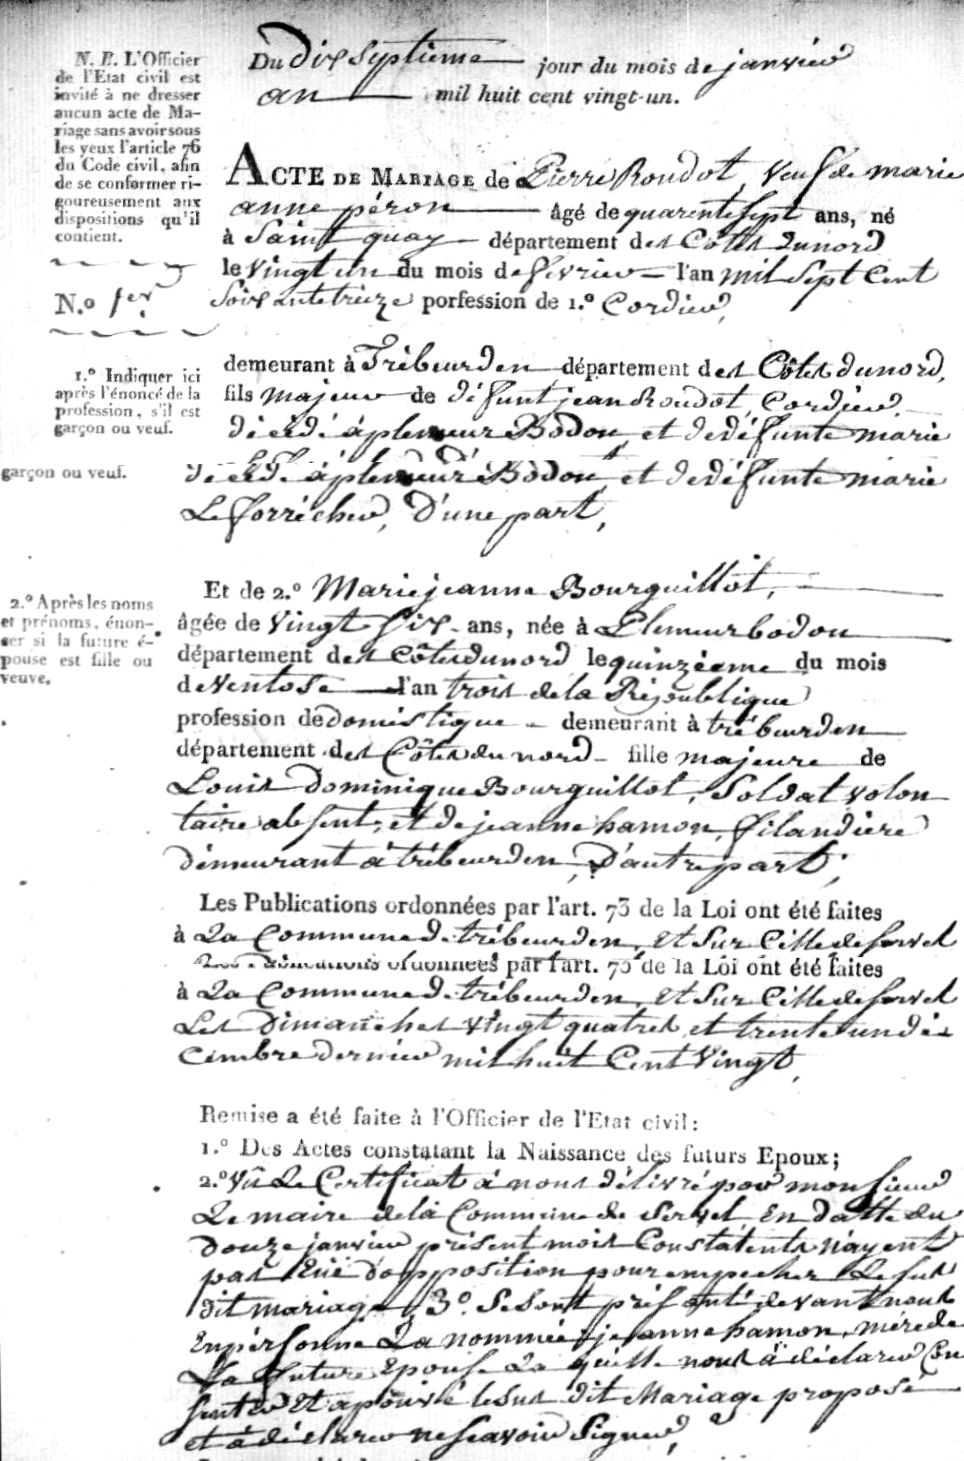 N. B. L'Officier
de l'Etat civil est
invité à ne dresser
aucun acte de Ma-
riage sans avoir sous
les yeux l'article 76
du Code civil, afin
de se conformer ri-
goureusement aux
dispositions qu'il
contient.
N.o 1er
1.o Indiquer ici
après l'énoncé de la
profession, s'il est
garçon ou veuf.
garçon ou veuf.
2.o Après les noms
et prénoms, énon-
cer si la future é-
pouse est fille ou
veuve.
Du dix septieme jour du mois de janvier
an mil huit cent vingt-un.
ACTE DE MARIAGE de Pierre Roudot, veuf de marie
anne péron âgé de quarente sept ans, né
à Saint quay département des Côtes dunord
le vingt un du mois de févrieu l'an mil sept cent
soixantetreize porfession de 1.o Cordieu,
demeurant à Trébeurden département des Côtes dunord,
fils majeur de défunt jean Roudot, Cordieu,
décédé à plemeur Bodou, et de défunte marie
décédé à plemeur Bodou, et de défunte marie
Le forrécheu, D'une part,
Et de 2.o Marie jeanne Bourguillot,
âgée de Vingt six ans, née à Plemeurbodou
département des Côtes dunord le quinzéeme du mois
de Ventose l'an trois de la République
profession de domestique demeurant à trébeurden
département des Côtes du nord fille majeure de
Louis Dominique Bourguillot, Soldat volon
taire absent, et de jeanne hamon, filandiere
démeurant à trébeurden, D'autre part;
Les Publications ordonnées par l'art. 73 de la Loi ont été faites
à La Commune de trébeurden, et Sur Celle de Servel
Les Publications ordonnées par l'art. 73 de la Loi ont été faites
à La Commune de trébeurden, et Sur Celle de Servel
Les Dimanches vingt quatres et trente un dé
cembre dernieu mil huit Cent Vingt,
Remise a été faite à l'Officier de l'Etat civil:
1.o Des Actes constatant la Naissance des futurs Epoux;
2.o Vû Le Certificat à nous délivré par monsieur
Le maire de la Commune de Servel en datte du
douze janvieu présent mois Constatents n'ayent
pas Eue d'opposition pour empecher Le sus
dit mariage, 3o. Se sont présenté devant nous
En pérsonne La nommée jeanne hamon, mére de
La future Epouse La quelle nous à déclareu Con
senteu Et apouvé le sus dit Mariage proposé
et à déclareu ne scavoir Signeu,